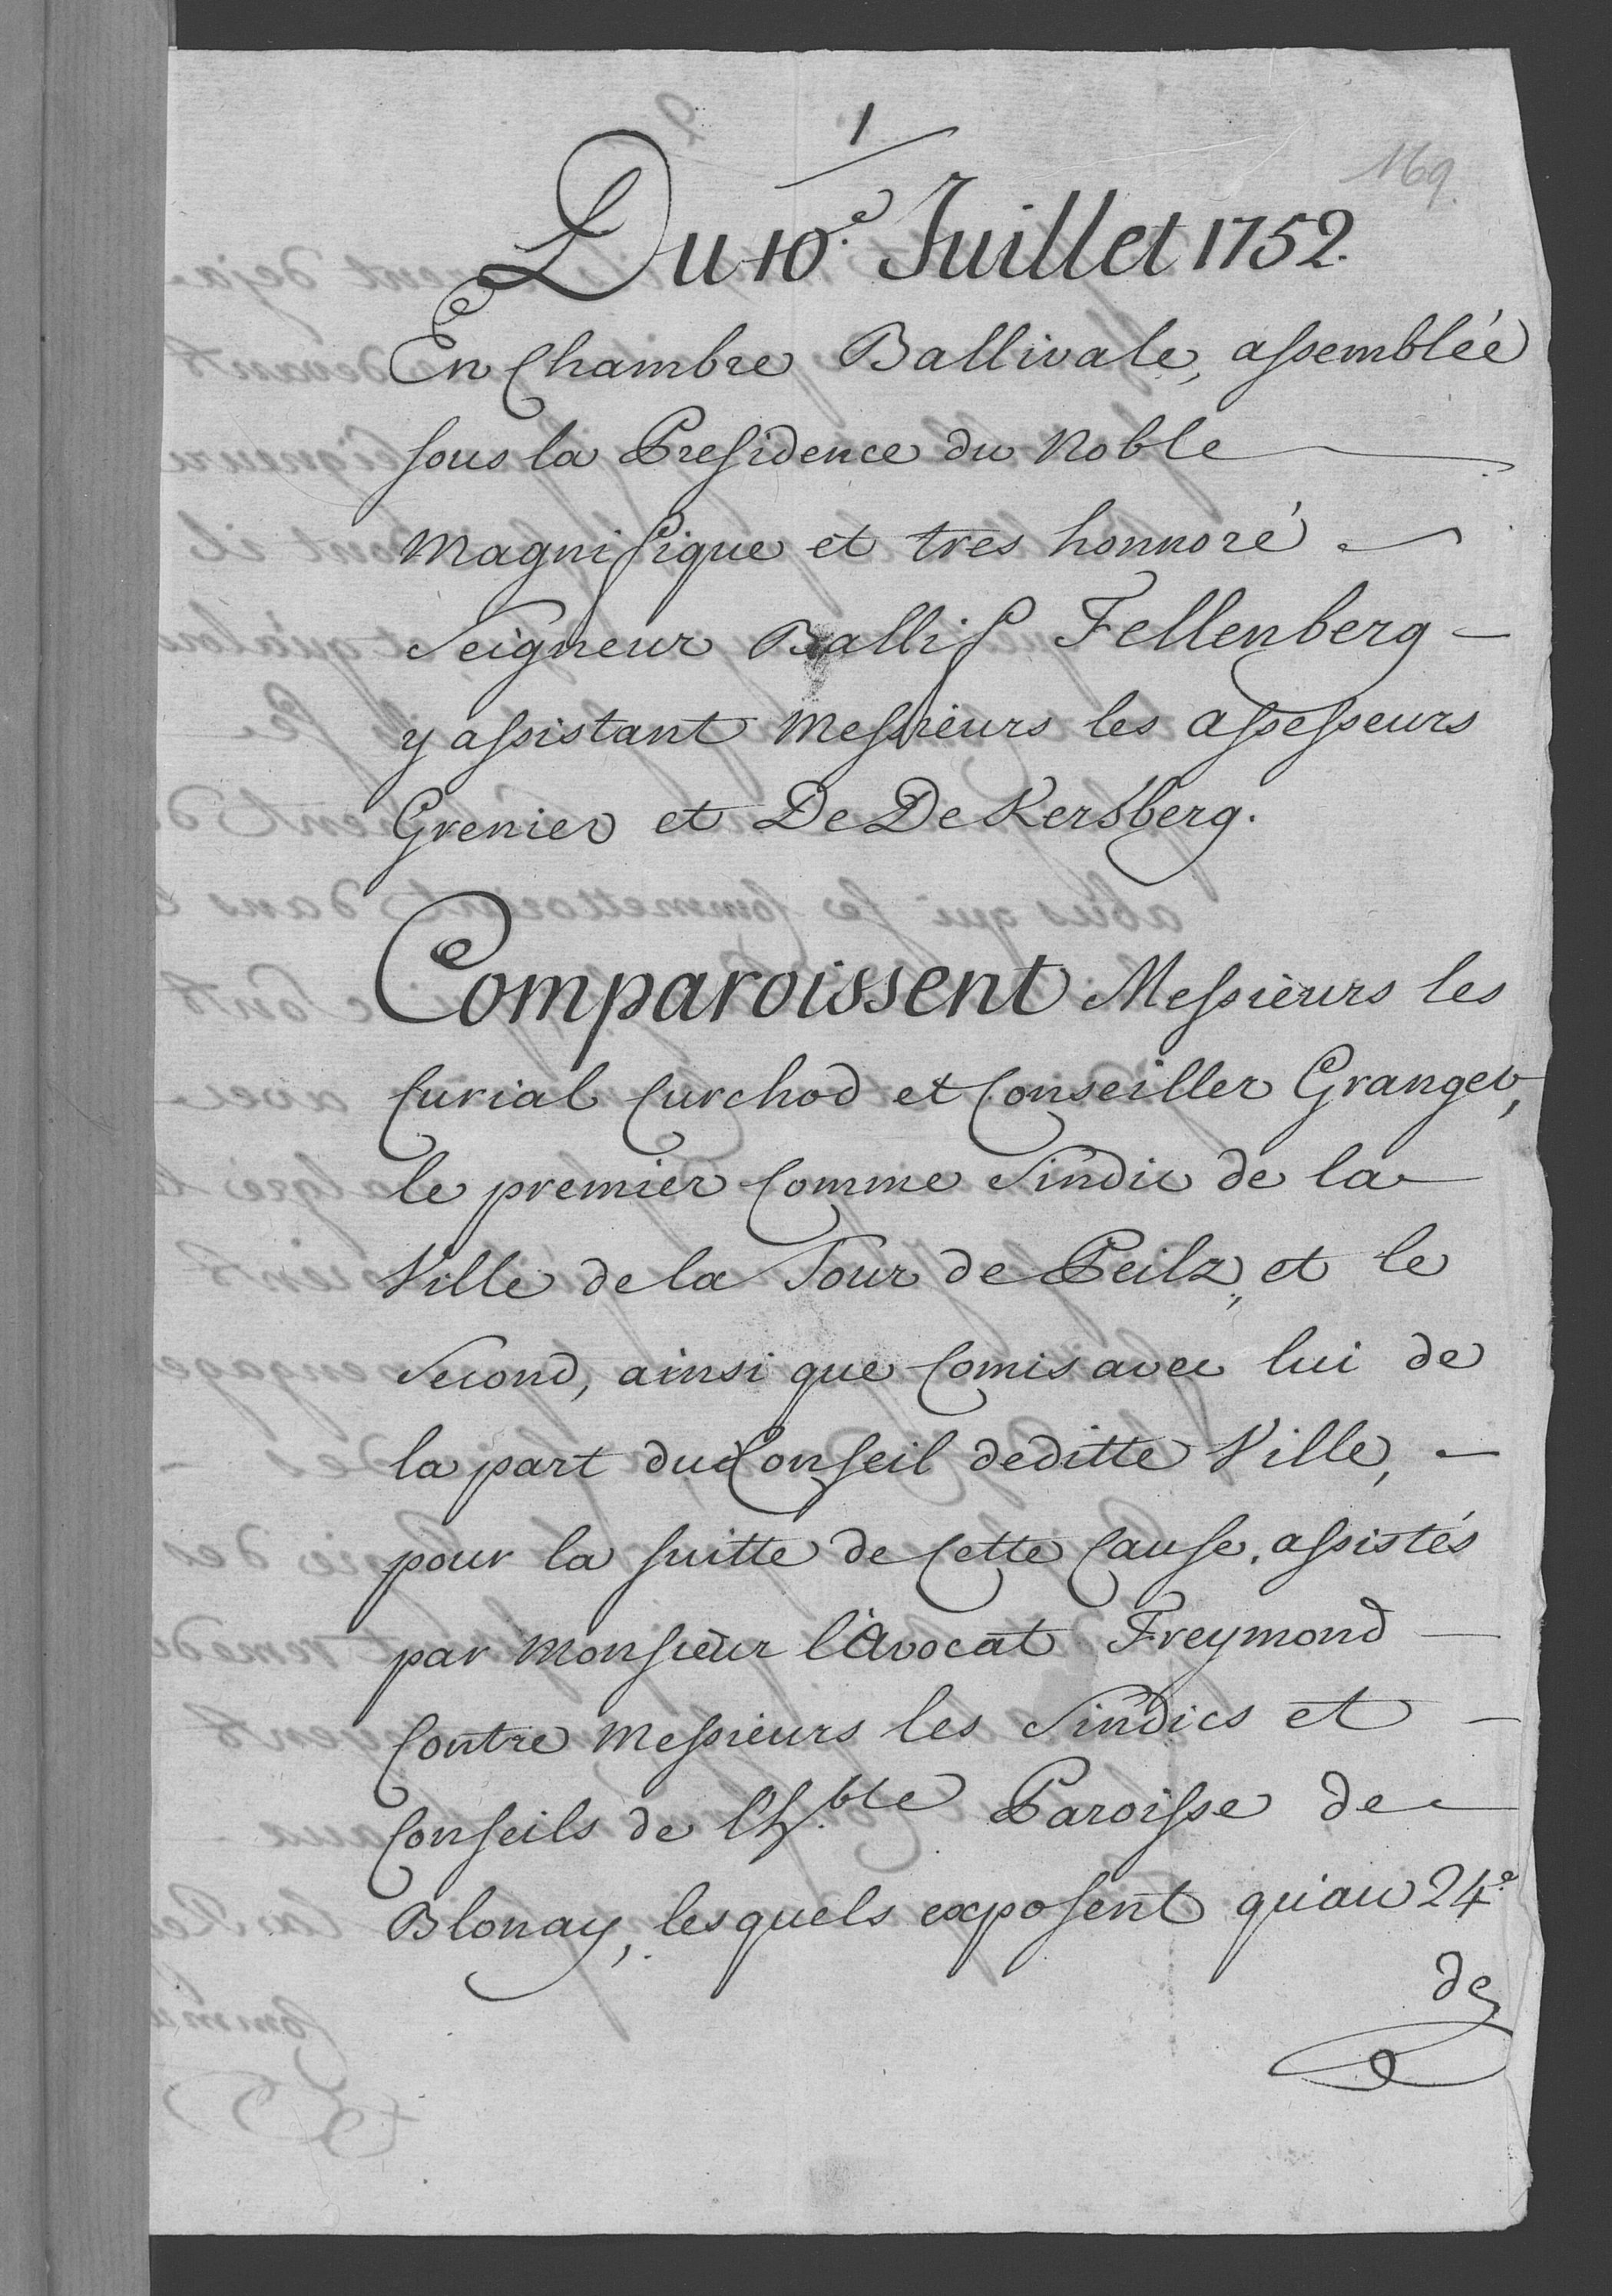 1
169.
Du 10.e Juillet 1752.
En Chambre Ballivale, assemblée
sous la Presidence du Noble
Magnifique et tres honnoré
Seigneur Ballif Fellenberg -
y assistant Messieurs les assesseurs
Grenier et De DeKersberg.
Comparoissent Messieurs les
Curial Curchod et Conseiller Granget,
le premier Comme Sindic de la
Ville de la Tour de Peilz, et le
Second, ainsi que Comis avec lui de
la part du Conseil de ditte Ville, -
pour la suitte de Cette Cause, assistés
par Monsieur l'Avocat Freymond -
Contre Messieurs les Sindics et -
Conseils de l'h.ble Paroisse de
Blonay, lesquels exposent qu'au 24.e
de